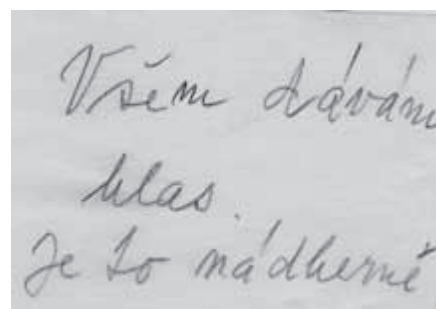 Všem dávám
hlas.
Je to nádherné